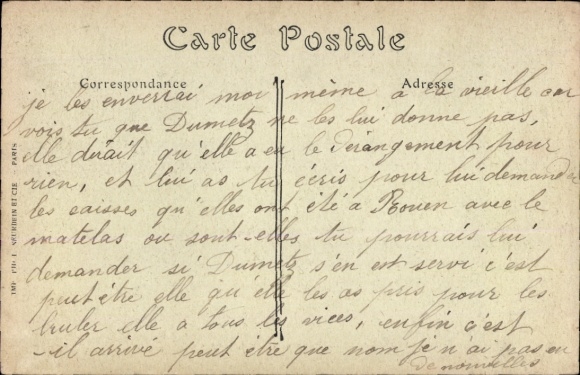 Carte Postale
Correspondance
Adresse
je les enverrai moi même à la vieille car
vois tu que Dumetz ne les lui donne pas,
elle dirait qu'elle a eu le dérangement pour
rien, et lui as tu écris pour lui demander
les caisses qu'elles ont été a Rouen avec le
matelas ou sont-elles tu pourrais lui
demander si Dumetz s'en est servi c'est
peut être elle qu'elle les as pris pour les
bruler elle a tous les vices, enfin c'est
-il arrivé peut être que nom je n'ai pas eu
de nouvelles
IMP. PH. L. NEURDEIN ET CIE PARIS